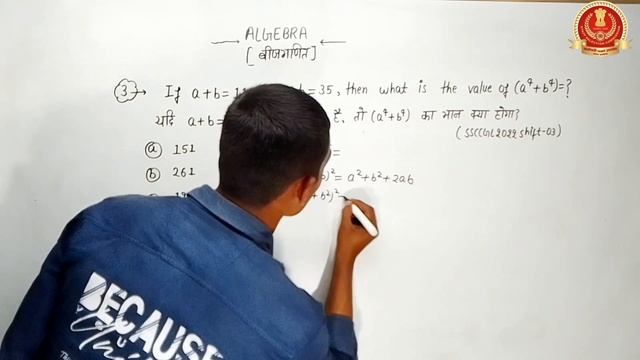 ALGEBRA
[बीजगणित]
③→ If a+b= b=35, then what is the value of (a⁴+b⁴)=?
यदि a+b= है, तो (a⁴+b⁴) का मान क्या होगा?
(SSC CGL 2022 Shift-03)
ⓐ 151 )=
ⓑ 261 )²= a²+b²+2ab
b²)²
BECAUSE